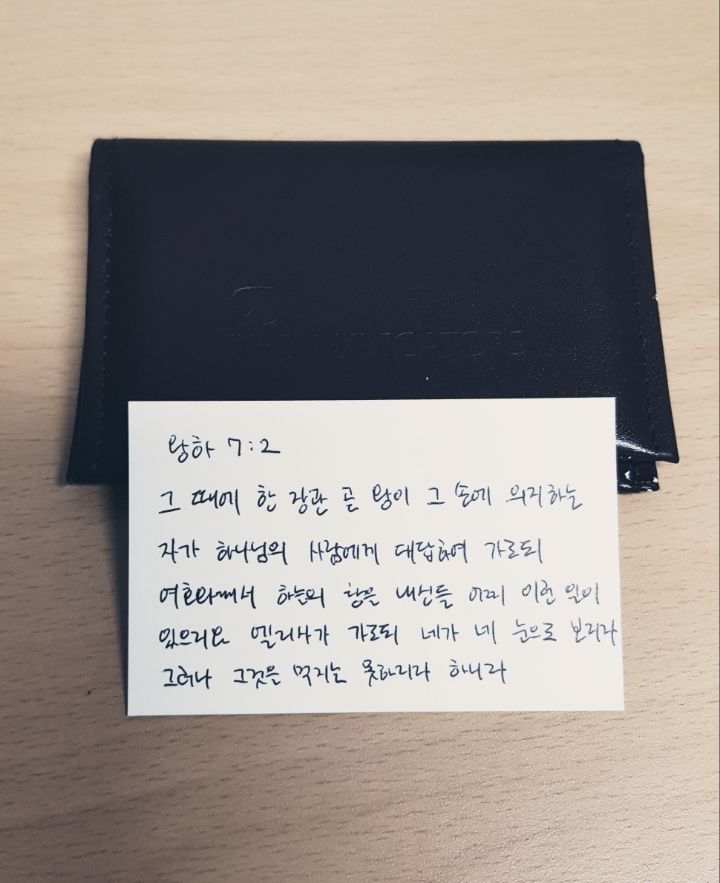 THE NAVIGATORS
왕하 7:2
그 때에 한 장관 곧 왕이 그 손에 의지하는
자가 하나님의 사람에게 대답하여 가로되
여호와께서 하늘의 창을 내신들 어찌 이런 일이
있으리요 엘리사가 가로되 네가 네 눈으로 보리라
그러나 그것을 먹지는 못하리라 하니라